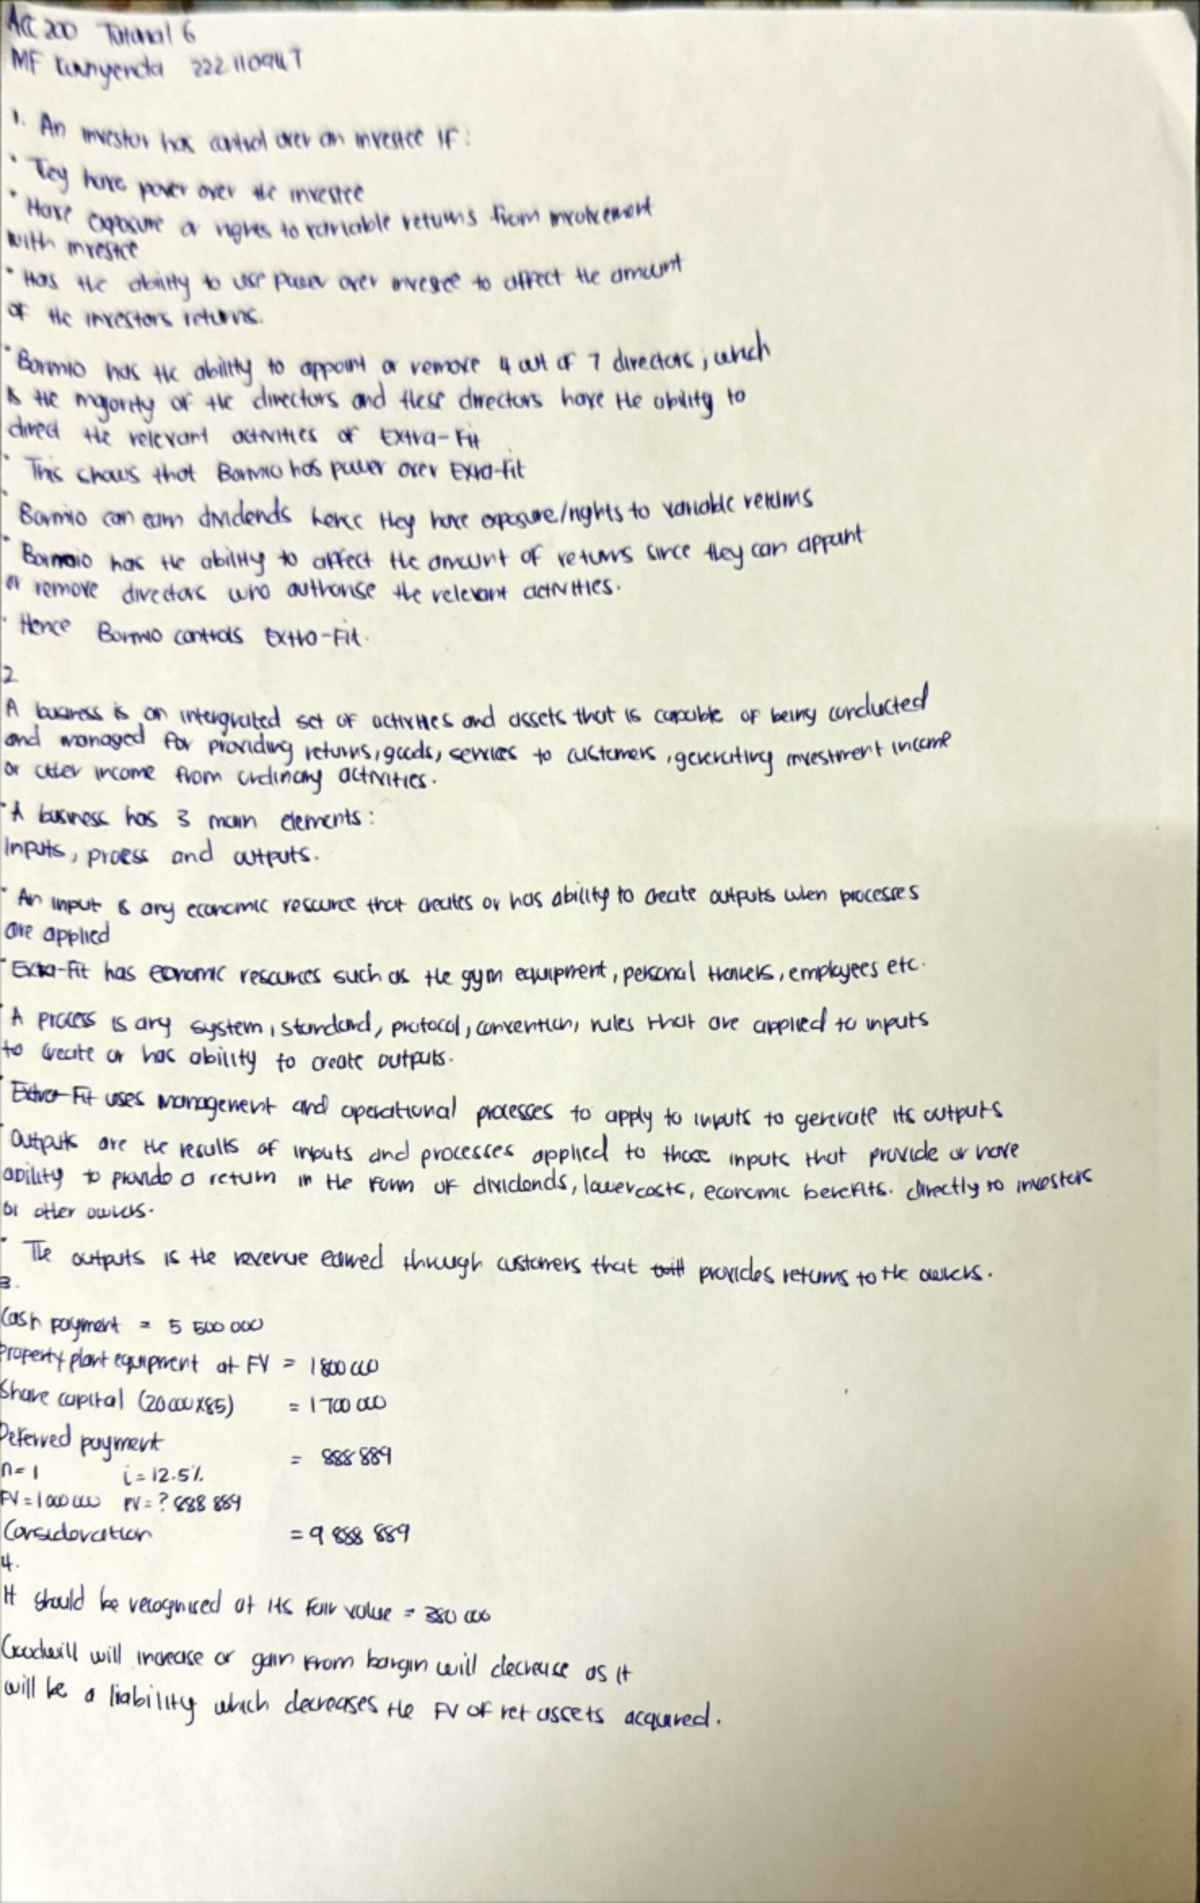 Acc 200 Tutorial 6
MF 222110947
1. An investor has control over an investee if:
• Tey have power over the investee
• Have exposure or rights to variable returns from involvement
with investee
• Has the ability to use power over investee to affect the amount
of the investors returns.
• Bormio has the ability to appoint or remove 4 out of 7 directors, which
is the majority of the directors and these directors have the ability to
direct the relevant activities of Extra-Fit
• This shows that Bormio has power over Extra-Fit
• Bormio can earn dividends hence they have exposure/rights to variable returns
• Bormio has the ability to affect the amount of returns since they can appoint
or remove directors who authorise the relevant activities.
• Hence Bormio controls Extra-Fit.
2
A business is an intergrated set of activities and assets that is capable of being conducted
and managed for providing returns, goods, services to customers, generating investment income
or other income from ordinary activities.
• A business has 3 main elements:
Inputs, process and outputs.
• An input is any economic resource that creates or has ability to create outputs when processes
are applied
• Extra-Fit has economic resources such as the gym equipment, personal trainers, employees etc.
• A process is any system, standard, protocol, convention, rules that are applied to inputs
to create or has ability to create outputs.
• Extra-Fit uses management and operational processes to apply to inputs to generate its outputs
• Outputs are the results of inputs and processes applied to those inputs that provide or have
ability to provide a return in the form of dividends, lower costs, economic benefits. directly to investors
or other owners.
• The outputs is the revenue earned through customers that will provides returns to the owners.
3.
Cash payment = 5 500 000
Property plant equipment at FV = 1 800 000
Share capital (20 000 x 85) = 1 700 000
Deferred payment = 888 889
n=1 i = 12.5%
FV = 1 000 000 PV = ? 888 889
Consideration = 9 888 889
4.
It should be recognised at its fair value = 380 000
Goodwill will increase or gain from bargin will decrease as it
will be a liability which decreases the FV of net assets acquired.